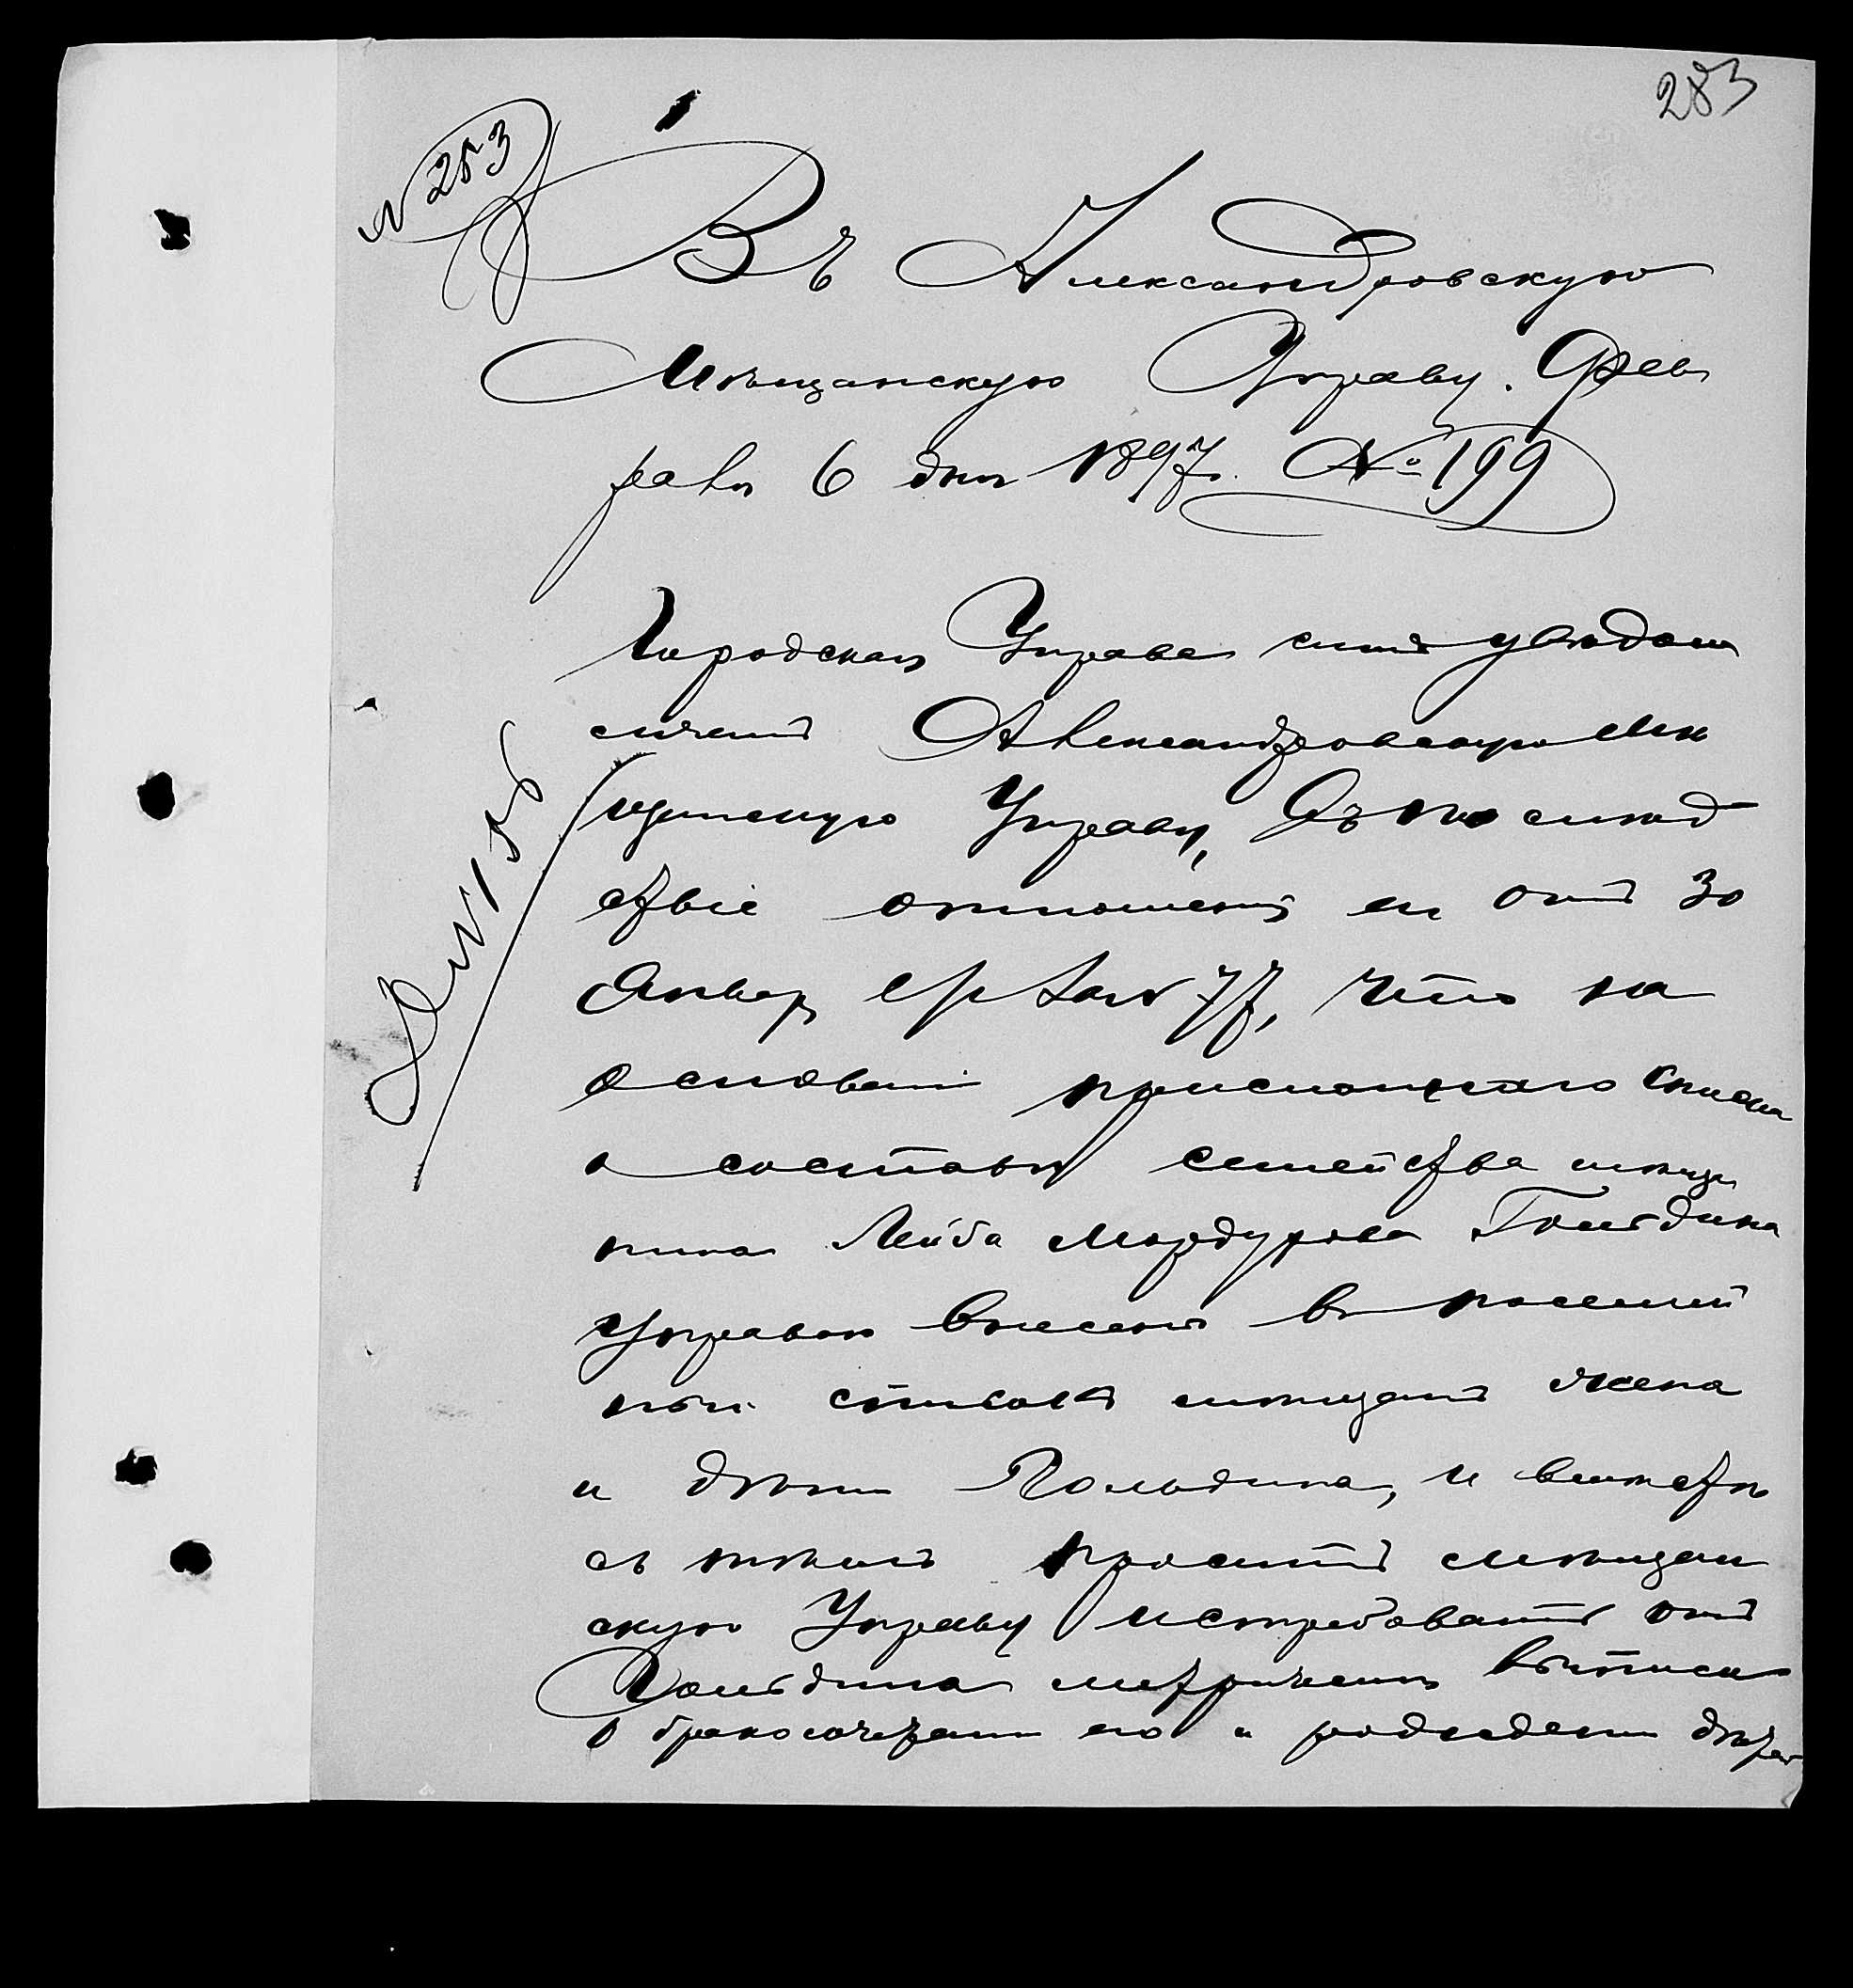 283
№ 253
Въ Александровскую
Мѣщанскую Управу. Фев
раля 6 дня 1897 г. № 199
Городская Управа симъ увѣдом
ляетъ Александровскую Мѣ
щанскую Управу, въ послѣд
ствіе отношенія ея отъ 30
Января с/г за № 77, что на
основаніи присланнаго списка
о составѣ семейства мѣща
нина Лейба Мордухова Гольдина
Управою внесены въ посемей
ный списокъ мѣщанъ жена
и дѣти Гольдина, и вмѣстѣ
съ тѣмъ проситъ мѣщан
скую Управу истребовать отъ
Гольдина метрическія выписи
о бракосочетаніи его и рожденіи дѣтей